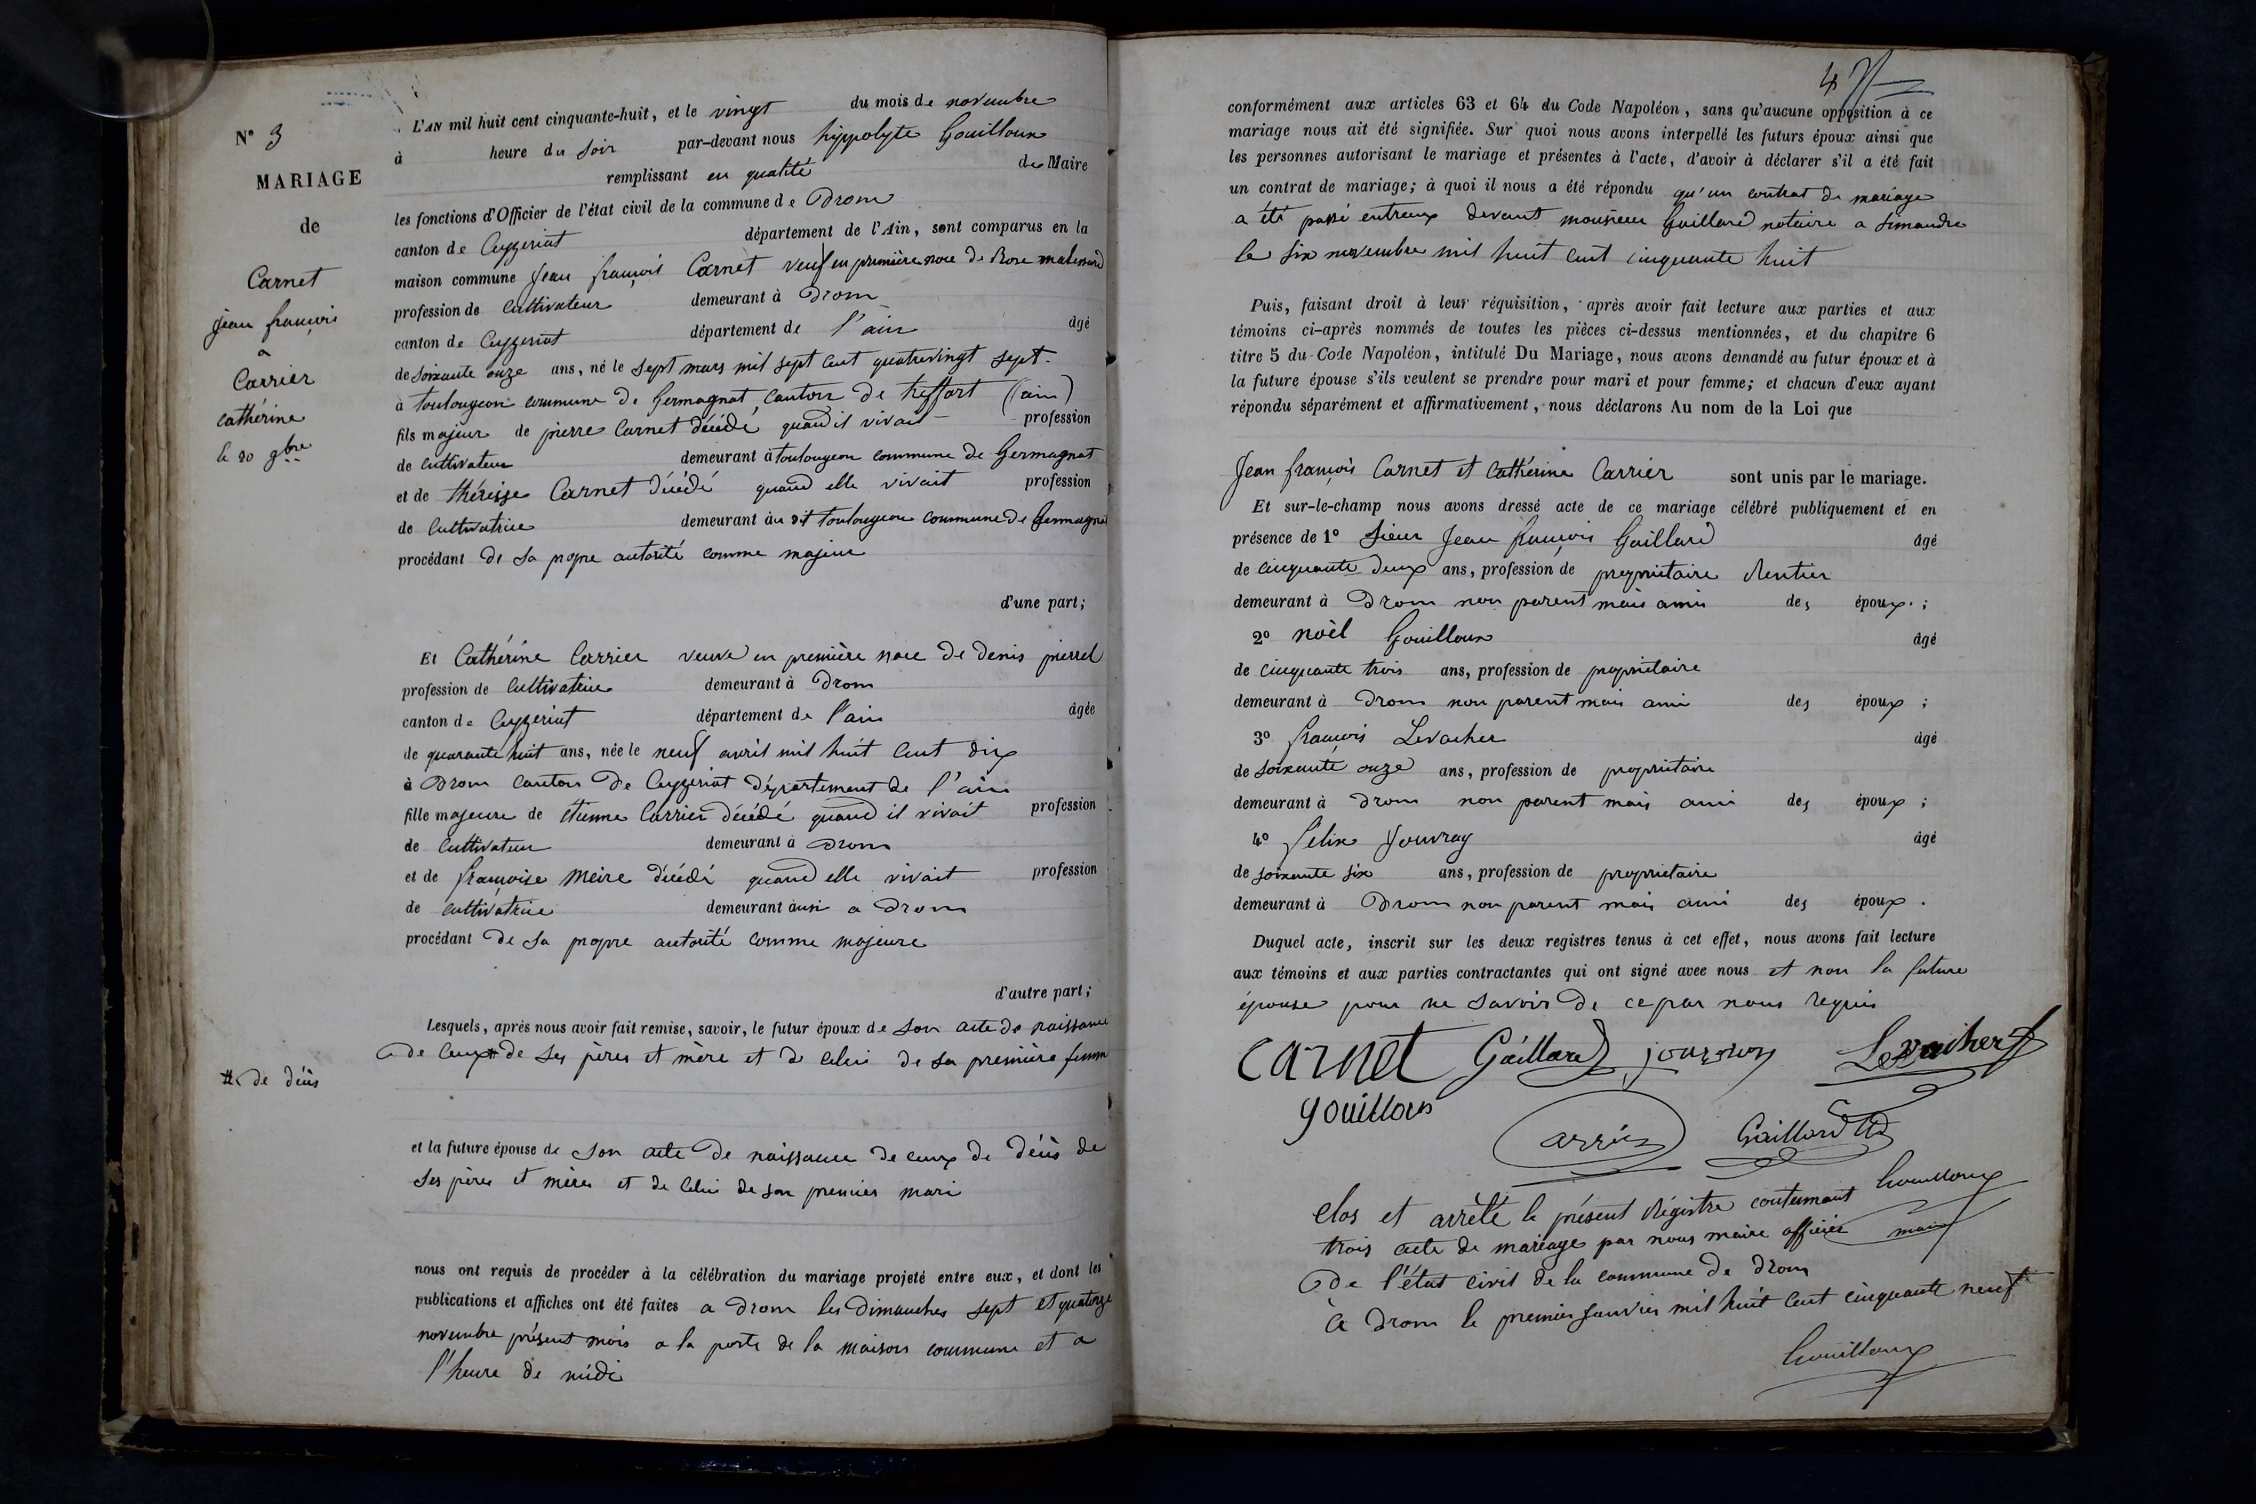 N° 3
MARIAGE
de
Carnet
jean françois
à
Carrier
cathérine
le 20 9bre
L'AN mil huit cent cinquante-huit, et le vingt du mois de novembre
à heure du soir par-devant nous hippolyte Gouilloux
remplissant en qualité de Maire
les fonctions d'Officier de l'état civil de la commune de Drom
canton de Ceyzeriat département de l'Ain, sont comparus en la
maison commune Jean françois Carnet veuf en première noce de Rose
profession de cultivateur demeurant à Drom
canton de Ceyzeriat département de l'ain âgé
de soixante onze ans, né le sept mars mil sept cent quatrevingt sept
à toulongeon commune de Germagnat, canton de treffort (ain)
fils majeur de pierre Carnet décédé quand il vivait profession
de cultivateur demeurant à toulongeon commune de Germagnat
et de thérèsse Carnet décédé quand elle vivait profession
de cultivatrice demeurant au dt toulongeon commune de Germagnat
procédant de sa propre autorité comme majeur
d'une part;
Et Cathérine Carrier veuve en première noce de denis pierrel
profession de cultivatrice demeurant à Drom
canton de Ceyzeriat département de l'ain âgée
de quarante huit ans, née le neuf avril mil huit cent dix
à Drom canton de Ceyzeriat département de l'ain
fille majeure de étienne Carrier décédé quand il vivait profession
de cultivateur demeurant à Drom
et de françoise Meire décédé quand elle vivait profession
de cultivatrice demeurant aussi a Drom
procédant de sa propre autorité comme majeure
d'autre part;
Lesquels, après nous avoir fait remise, savoir, le futur époux de son acte de naissance
de ceux # de ses pères et mère et de celui de sa première femme
# de décès
et la future épouse de son acte de naissance de ceux de décès de
ses pères et mères et de celui de son premier mari
nous ont requis de procéder à la célébration du mariage projeté entre eux, et dont les
publications et affiches ont été faites a drom les dimanches sept et quatorze
novembre présent mois a la porte de la maison commune et a
l'heure de midi
4
conformément aux articles 63 et 64 du Code Napoléon, sans qu'aucune opposition à ce
mariage nous ait été signifiée. Sur quoi nous avons interpellé les futurs époux ainsi que
les personnes autorisant le mariage et présentes à l'acte, d'avoir à déclarer s'il a été fait
un contrat de mariage; à quoi il nous a été répondu qu'un contrat de mariage
a été passé entreux devant monsieur Gaillard notaire a simandre
le six novembre mil huit cent cinquante huit
Puis, faisant droit à leur réquisition, après avoir fait lecture aux parties et aux
témoins ci-après nommés de toutes les pièces ci-dessus mentionnées, et du chapitre 6
titre 5 du Code Napoléon, intitulé Du Mariage, nous avons demandé au futur époux et à
la future épouse s'ils veulent se prendre pour mari et pour femme; et chacun d'eux ayant
répondu séparément et affirmativement, nous déclarons Au nom de la Loi que
Jean françois Carnet et Cathérine Carrier sont unis par le mariage.
Et sur-le-champ nous avons dressé acte de ce mariage célébré publiquement et en
présence de 1° sieur Jean françois Gaillard âgé
de cinquante deux ans, profession de propriétaire Rentier
demeurant à Drom non parent mais amis des époux;
2° noèl Gouilloux âgé
de cinquante trois ans, profession de propriétaire
demeurant à Drom non parent mais ami des époux;
3° françois Levacher âgé
de soixante onze ans, profession de propriétaire
demeurant à drom non parent mais ami des époux;
4° félix Jouvray âgé
de soixante six ans, profession de propriétaire
demeurant à Drom non parent mais ami des époux.
Duquel acte, inscrit sur les deux registres tenus à cet effet, nous avons fait lecture
aux témoins et aux parties contractantes qui ont signé avec nous et non la future
épouse pour ne savoir de ce par nous requis
carnet Gaillard Levacher
gouilloux
Gaillard
Gouilloux
clos et arrêté le présent Régistre contenant
trois acte de mariage par nous maire officier
maire
de l'état civil de la commune de drom
à drom le premier janvier mil huit cent cinquante neuf
Gouilloux